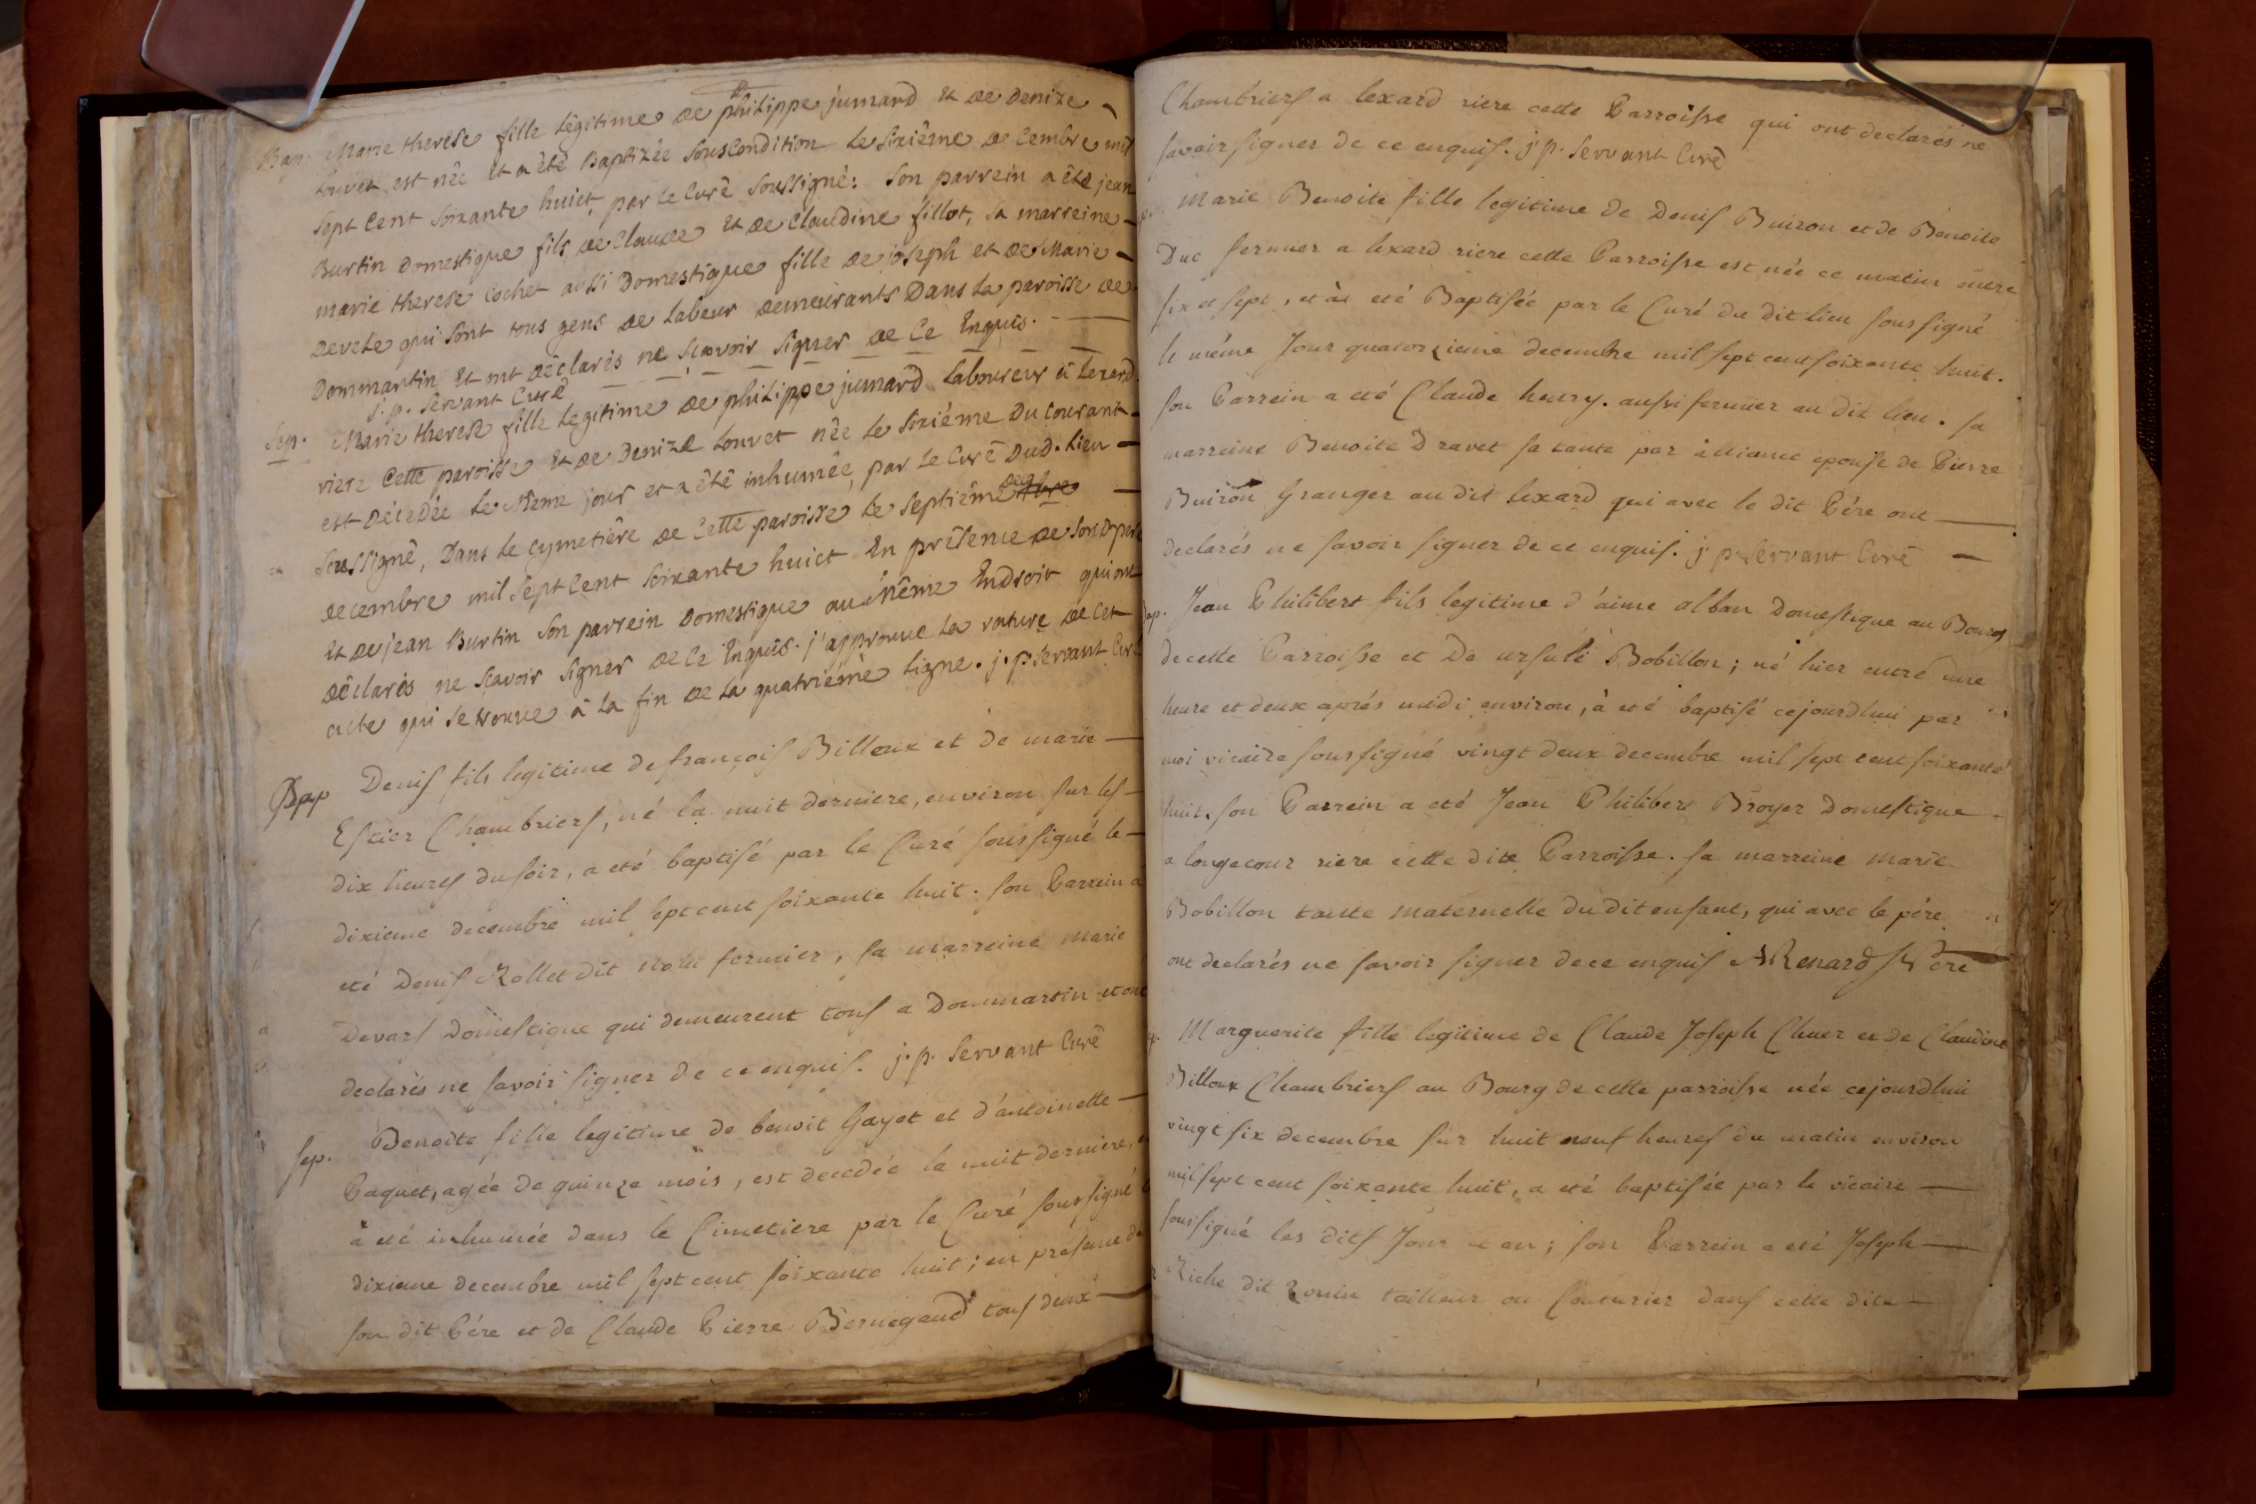 Bap. Marie therese fille legitime de philippe jumard et de denize
Louvet est née et a êté Baptizée sous condition le sixiême decembre mil
sept cent soixante huict, par le Curê soussigné: son parrein a êté jean
Burtin Domestique fils de Claude et de Claudine fillot, sa marreine
marie therese Cochet aussi Domestique fille de joseph et de Marie
qui sont tous gens de labeur demeurants Dans la paroisse de
Dommartin et ont dêclarês ne sçavoir signer de ce Enquis.
j. p. servant Curê
Sep. Marie therese fille legitime de philippe jumard laboureur à lexard
riere Cette paroisse et de denize Louvet née le sixiéme du courant
est décédée le même jour et a êté inhumée, par le Curê Dud. lieu
soussignê, Dans le cymetiêre de Cette paroisse le septiême
decembre mil sept Cent soixante huict En prêsence de sond. pere
et de jean Burtin son parrein Domestique au même Endroit qui ont
dêclarês ne sçavoir signer de ce Enquis. j'approuve la rature de cet
acte qui se trouve â la fin de la quatriême ligne. j. p. servant Curê
Bap Denis fils legitime de françois Billoux et de marie
Estier Chambriers, né la nuit derniere, environ sur les
dix heures du soir, a eté baptisé par le Curé soussigné le
dixieme decembre mil sept cent soixante huit. son Parrein a
eté Denis Rollet dit fermier, sa marreine Marie
Devars Domestique qui demeurent tous a Dommartin et ont
declarés ne savoir signer de ce enquis. j. p. servant Curê
Sep. Benoite fille legitime de benoit Gayet et d'antoinette
Paquet, agée de quinze mois, est decedée la nuit derniere,
a eté inhumée dans le Cimetiere par le Curé soussigné
dixieme decembre mil sept cent soixante huit; en presence de
son dit Pére et de Claude Pierre Bernegaud tous deux
Chambriers a lexard riere cette Parroisse qui ont declarés ne
savoir signer de ce enquis. j. p. servant Curê
Marie Benoite fille legitime de Denis Buiron et de Benoite
Duc fermier a lexard riere cette Parroisse est née ce matin entre
six et sept, et à eté Baptisée par le Curé du dit lieu soussigné
le même Jour quatorzieme decembre mil sept cent soixante huit.
son Parrein a eté Claude henry. aussi fermier au dit lieu. sa
marreine Benoite Dravet sa tante par alliance epouse de Pierre
Buiron Granger au dit lexard qui avec le dit Pére ont
declarés ne savoir signer de ce enquis. j p servant Curê
Bap. Jean Philibert fils legitime d'aime alban Domestique au Bourg
de cette Parroisse et De ursule Bobillon; né hier entre une
heure et deux aprés midi environ, à eté baptisé cejourdhui par
moi vicaire soussigné vingt deux decembre mil sept cent soixante
huit. son Parrein a eté Jean Philibert Broyer Domestique
a longecour riere cette dite Parroisse. sa marreine Marie
Bobillon tante Maternelle du dit enfant, qui avec le pére
ont declarés ne savoir signer de ce enquis ARenard
Marguerite fille legitime de Claude Joseph Chuer et de Claudine
Billoux Chambriers au Bourg de cette parroisse née cejourdhui
vingt six decembre sur huit neuf heures du matin environ
mil sept cent soixante huit, a eté baptisée par le vicaire
soussigné les dits Jour et an; son Parrein a eté Joseph
Riche dit tailleur ou Couturier dans cette dite